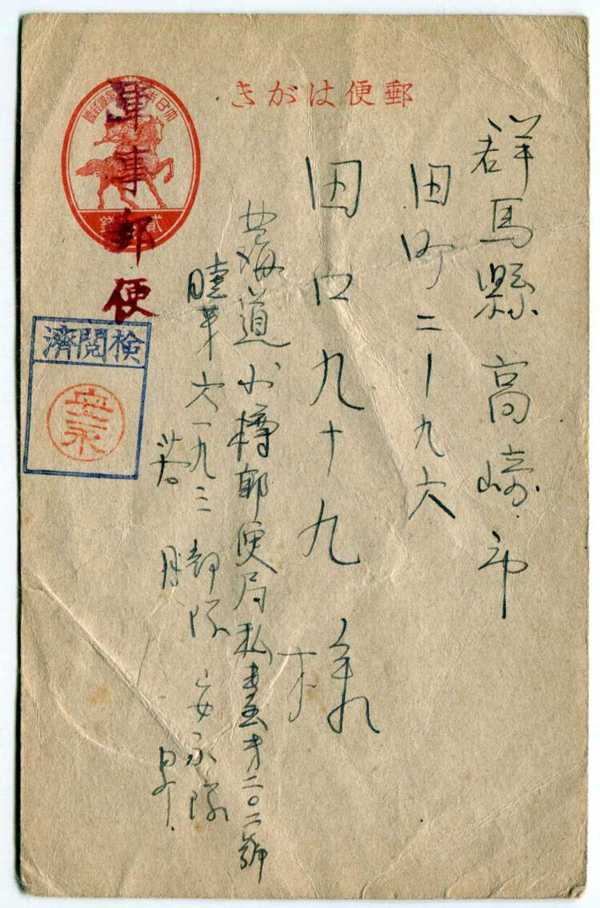 郵便はがき
群馬縣高崎市
田町二ー九六
田口九十九様
北海道小樽郵便局私書才二〇二號
暁第六一九三部隊 安永隊
若
軍事郵便
検閲濟
安永